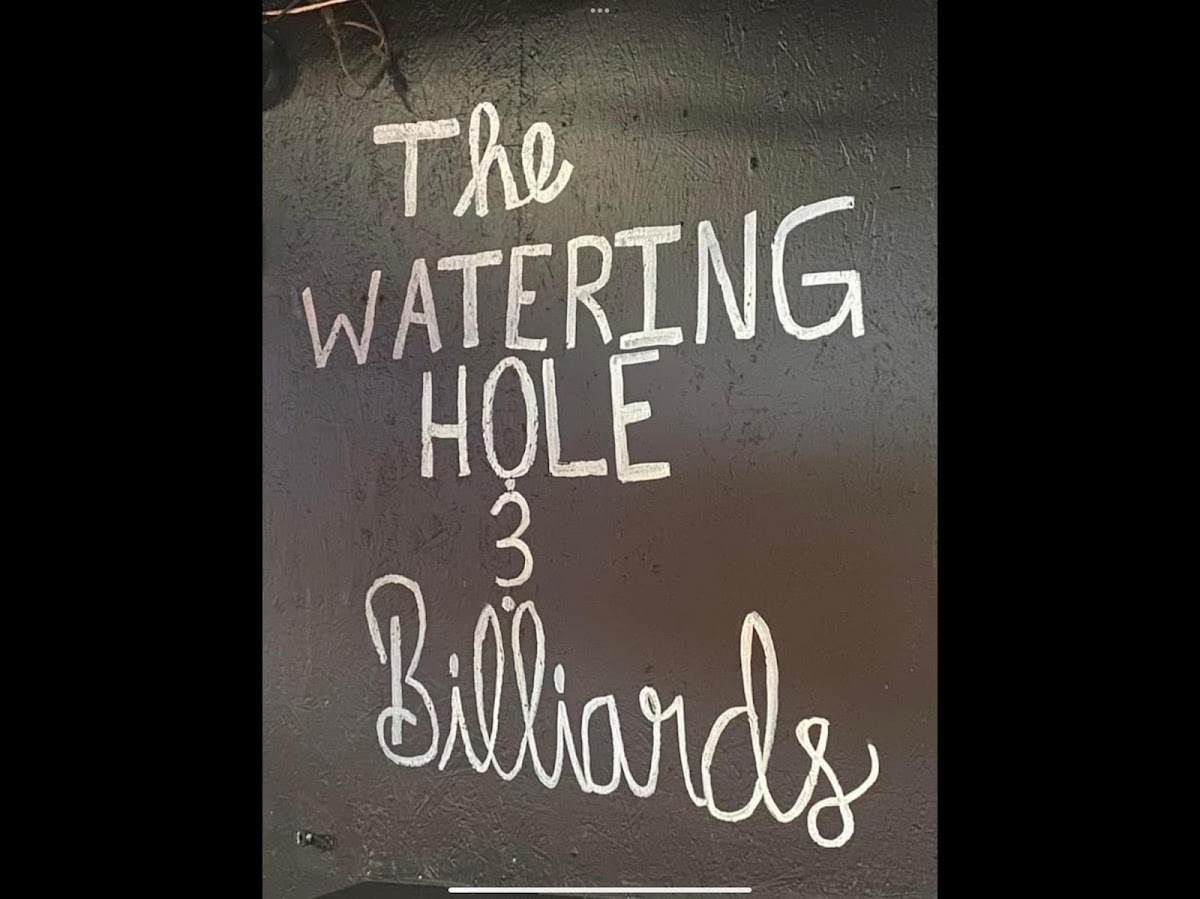 The
WATERING
HOLE
&
Billiards